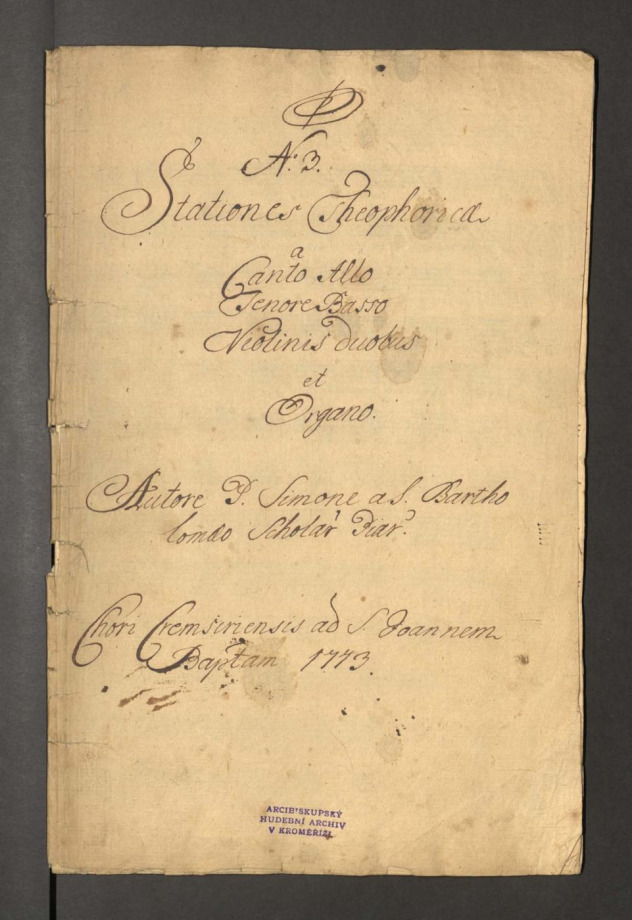 D
N: 3.
Stationes Theophoricæ
a
Canto Alto
Tenore Basso
Violinis duobus
et
Organo.
Autore P. Simone a S. Bartho
lomæo Scholar Piar:
Chori Cremsiriensis ad S. Joannem
Baptam 1773.
ARCIBISKUPSKÝ
HUDEBNÍ ARCHIV
V KROMĚŘÍŽI.